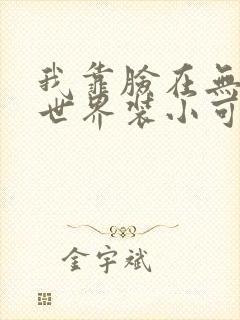 我靠臉在無
世界裝小可
金宇斌